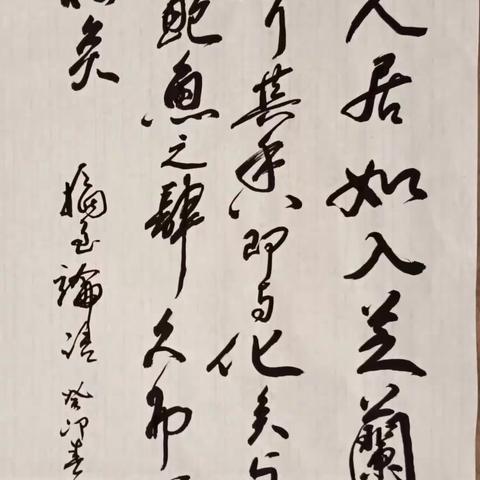 人居如入芝蘭
其香即与化矣与
鮑魚之肆久而
矣 摘至論語 癸卯春